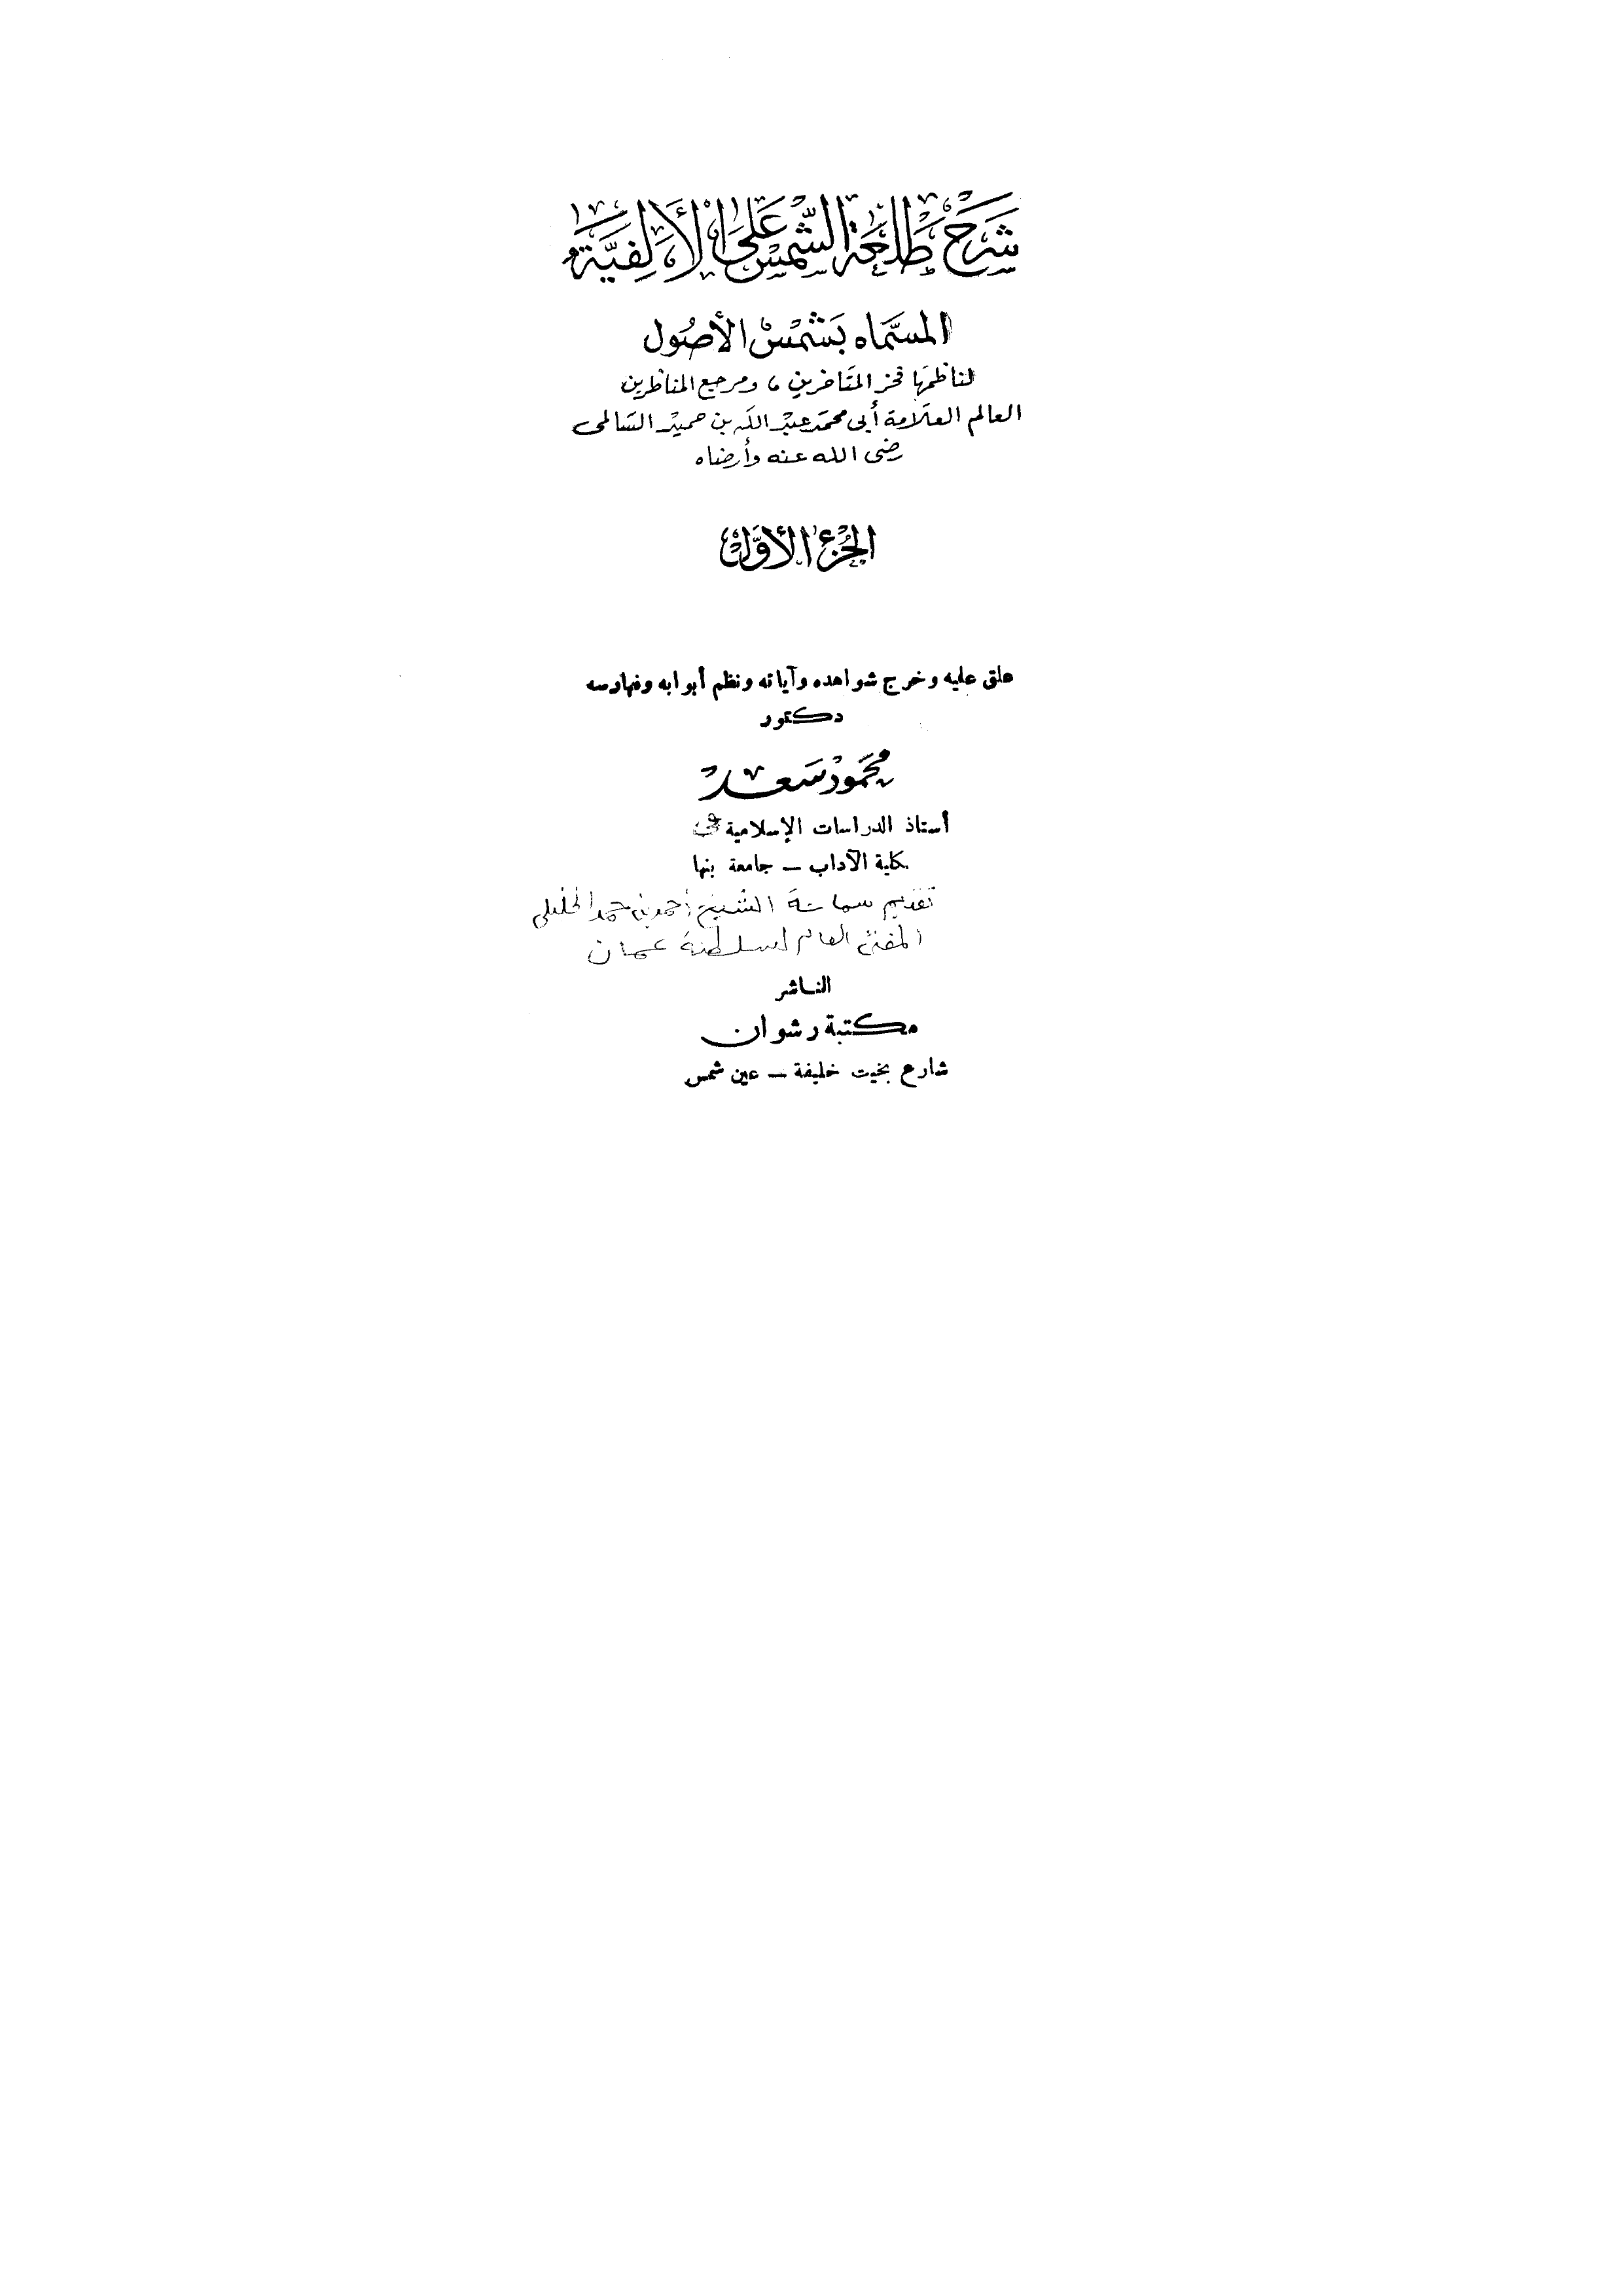 شَرْح طَلْعَة الشَّمْس عَلَى الأَلْفِيَّة
المسَمَّاه بَشَمْسْ الأصُول
لناظمَها فخر المتَأخرين ، ومرجع المناظرين
العالم العلَامة أبى محمَد عبْد اللَه بن حميْد السَالمى
رضى الله عنه وأرضاه
الجُزْءُ الأَوَّلْ
علق عليه وخرج شواهده وآياته ونظم أبوابه وفهارسه
دكتور
محَمَودْ سَعد
أستاذ الدراسات الإسلامية
كلية الآداب – جامعة بنها
تقديم سماحة الشيخ أحمد بن حمد الخليلى
المفتى العام لسلطنة عمان
الناشر
مكتبة رشوان
شارع بخيت خليفة – عين شمس